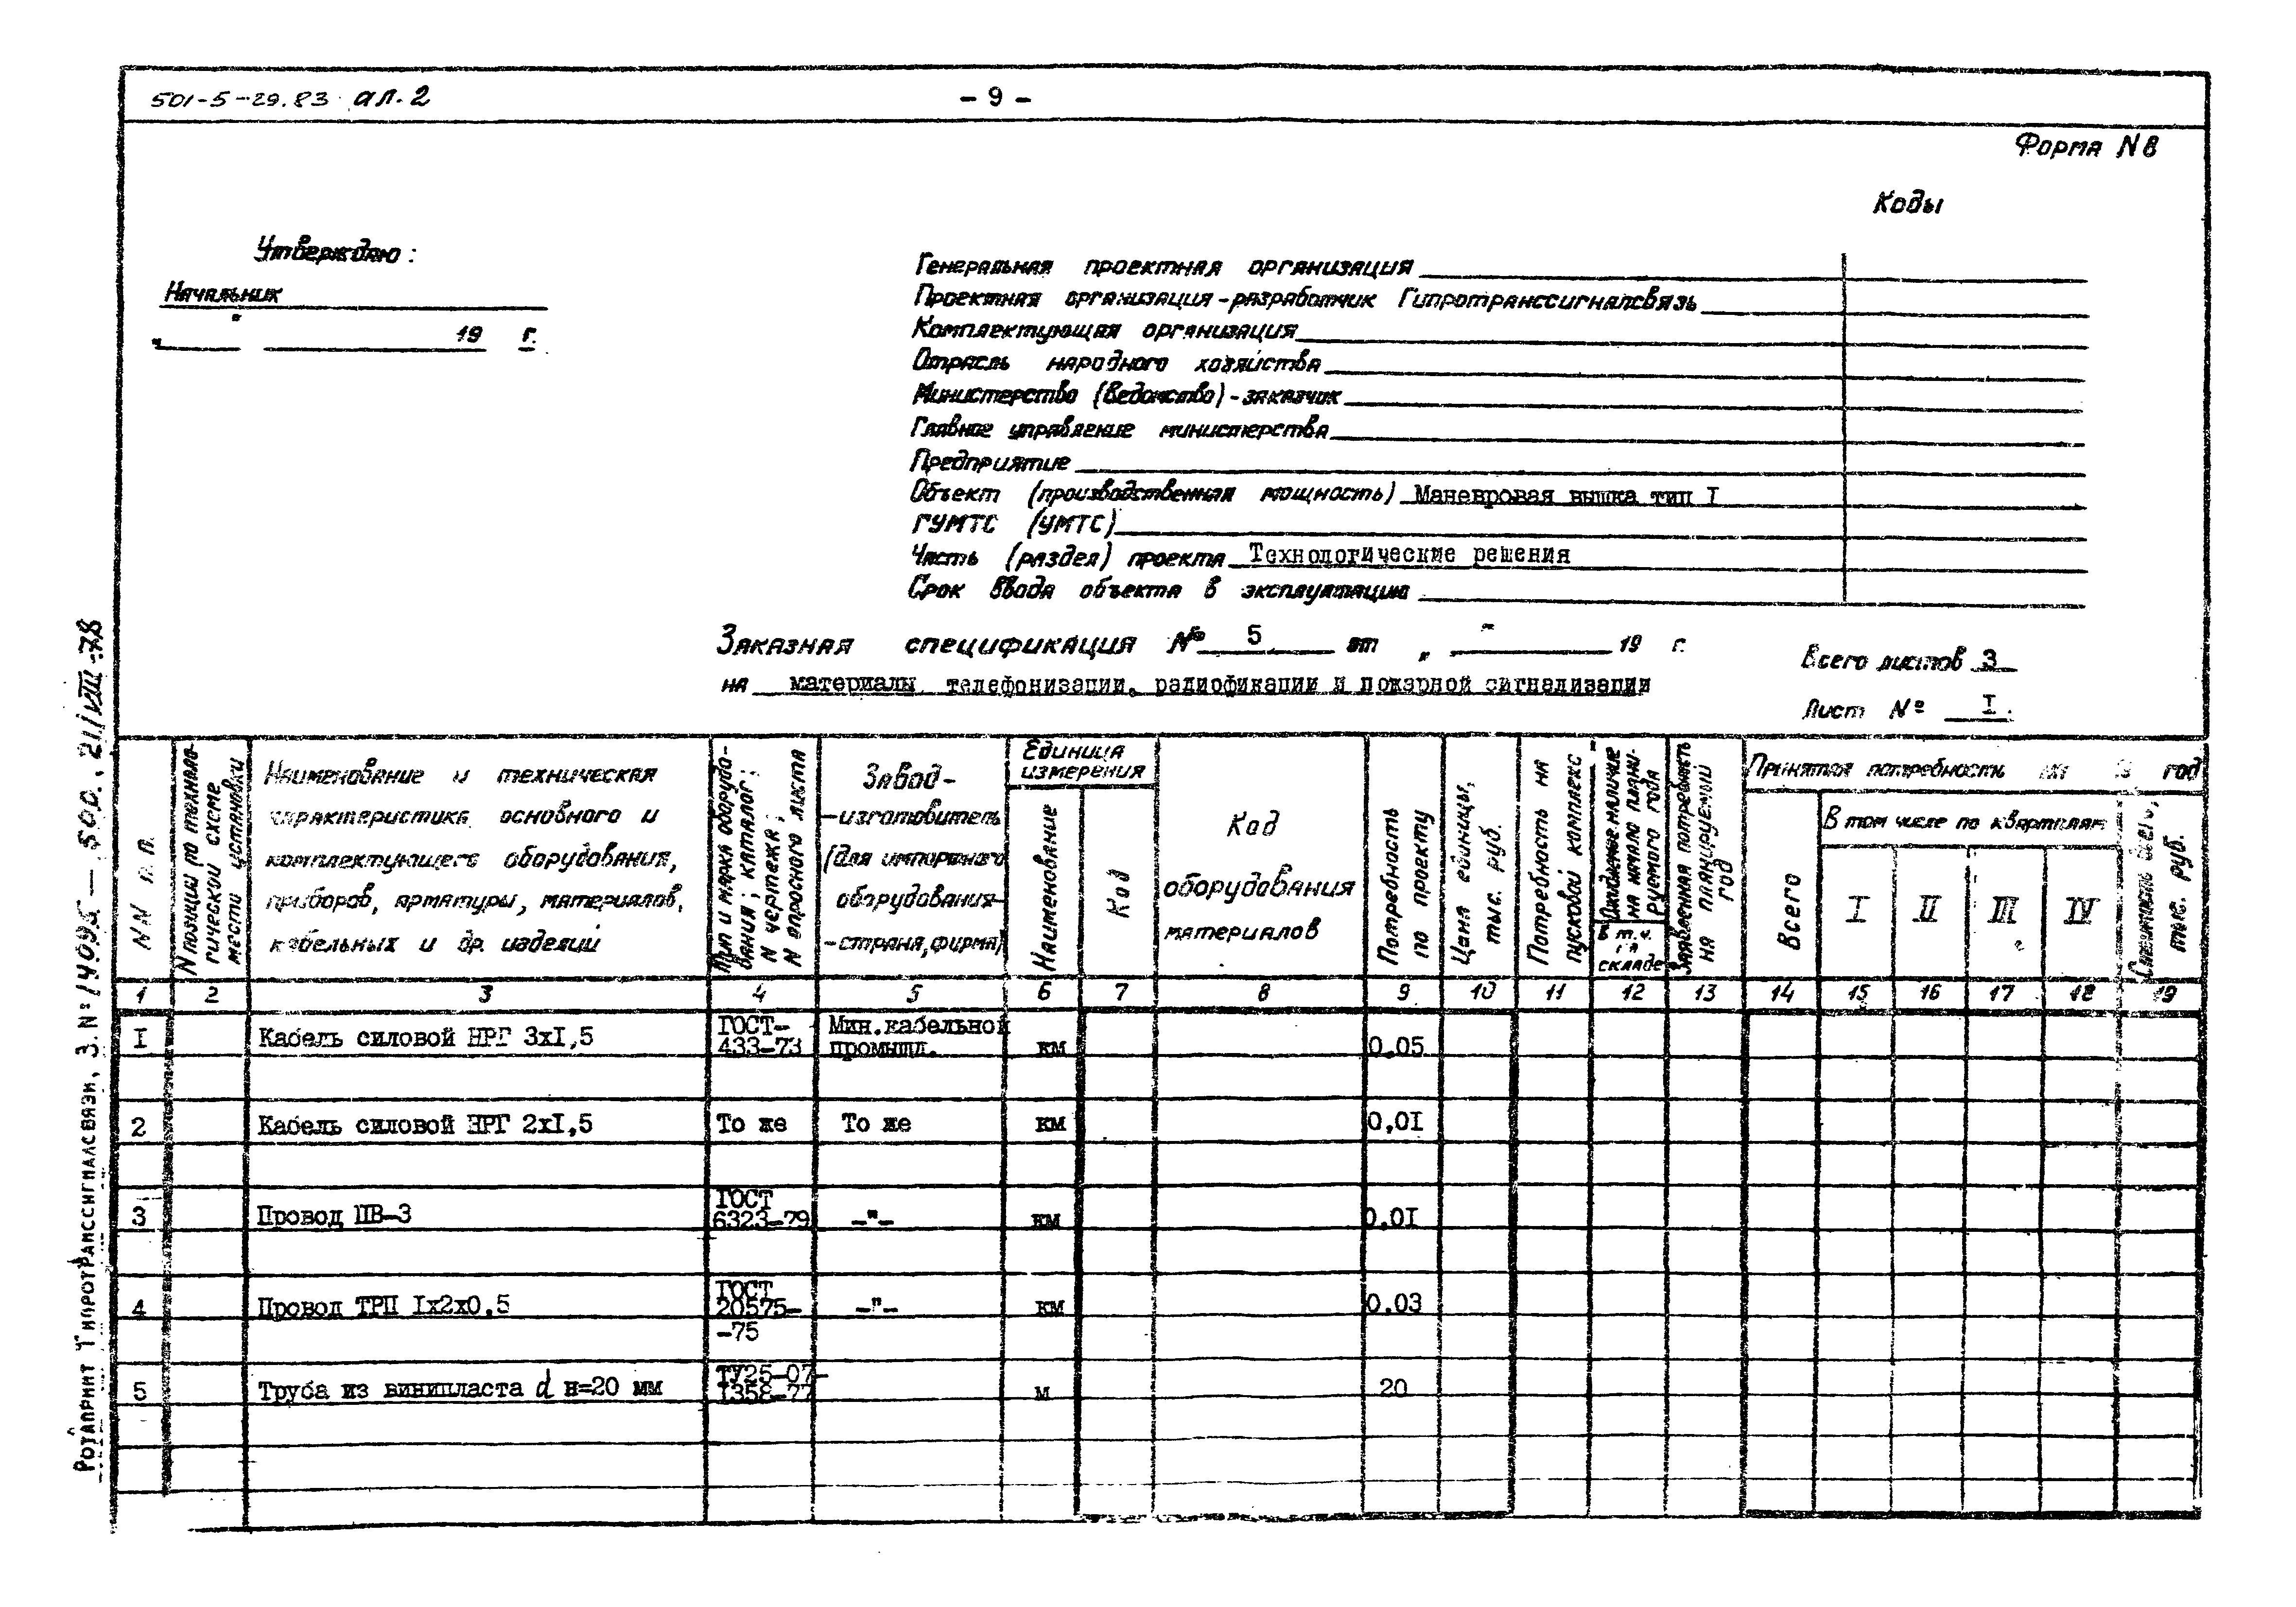 501-5-29.83 ал.2
- 9 -
Форма N8
Коды
Утверждаю:
Начальник
"   " 19 г.
Генеральная проектная организация
Проектная организация-разработчик Гипротранссигналсвязь
Комплектующая организация
Отрасль народного хозяйства
Министерство (ведомство)-заказчик
Главное управление министерства
Предприятие
Объект (производственная мощность) Маневровая вышка тип I
ГУМТС (УМТС)
Часть (раздел) проекта Технологические решения
Срок ввода объекта в эксплуатацию
Заказная спецификация № 5 от " " 19 г.
на материалы телефонизации, радиофикации и пожарной сигнализации
Всего листов 3
Лист № I.
NN п.п.
N позиции по техноло-
гической схеме
места установки
Наименование и техническая
характеристика основного и
комплектующего оборудования,
приборов, арматуры, материалов,
кабельных и др. изделий
Тип и марка оборудо-
вания; каталог;
N чертежа;
N опросного листа
Завод-
-изготовитель
(для импортного
оборудования-
-страна, фирма)
Единица
измерения
Наименование
Код
Код
оборудования
материалов
Потребность
по проекту
Цена единицы,
тыс. руб.
Потребность на
пусковой комплекс
Ожидаемое наличие
на начало плани-
руемого года
в т.ч.
на
складе
Заявленная потребность
на планируемый
год
Принятая потребность на 19 год
Всего
В том числе по кварталам
I
II
III
IV
Стоимость всего,
тыс. руб.
1 2 3 4 5 6 7 8 9 10 11 12 13 14 15 16 17 18 19
I Кабель силовой НРГ 3хI,5 ГОСТ-433-73 Мин.кабельной промышл. км 0,05
2 Кабель силовой НРГ 2хI,5 То же То же км 0,0I
3 Провод ПВ-3 ГОСТ 6323-79 -"- км 0,0I
4 Провод ТРП Iх2х0,5 ГОСТ 20575--75 -"- км 0,03
5 Труба из винипласта d н=20 мм ТУ25-07-I358-77 м 20
Ротапринт Гипротранссигналсвязи, З.№ 14095 - 500. 21/VIII-78